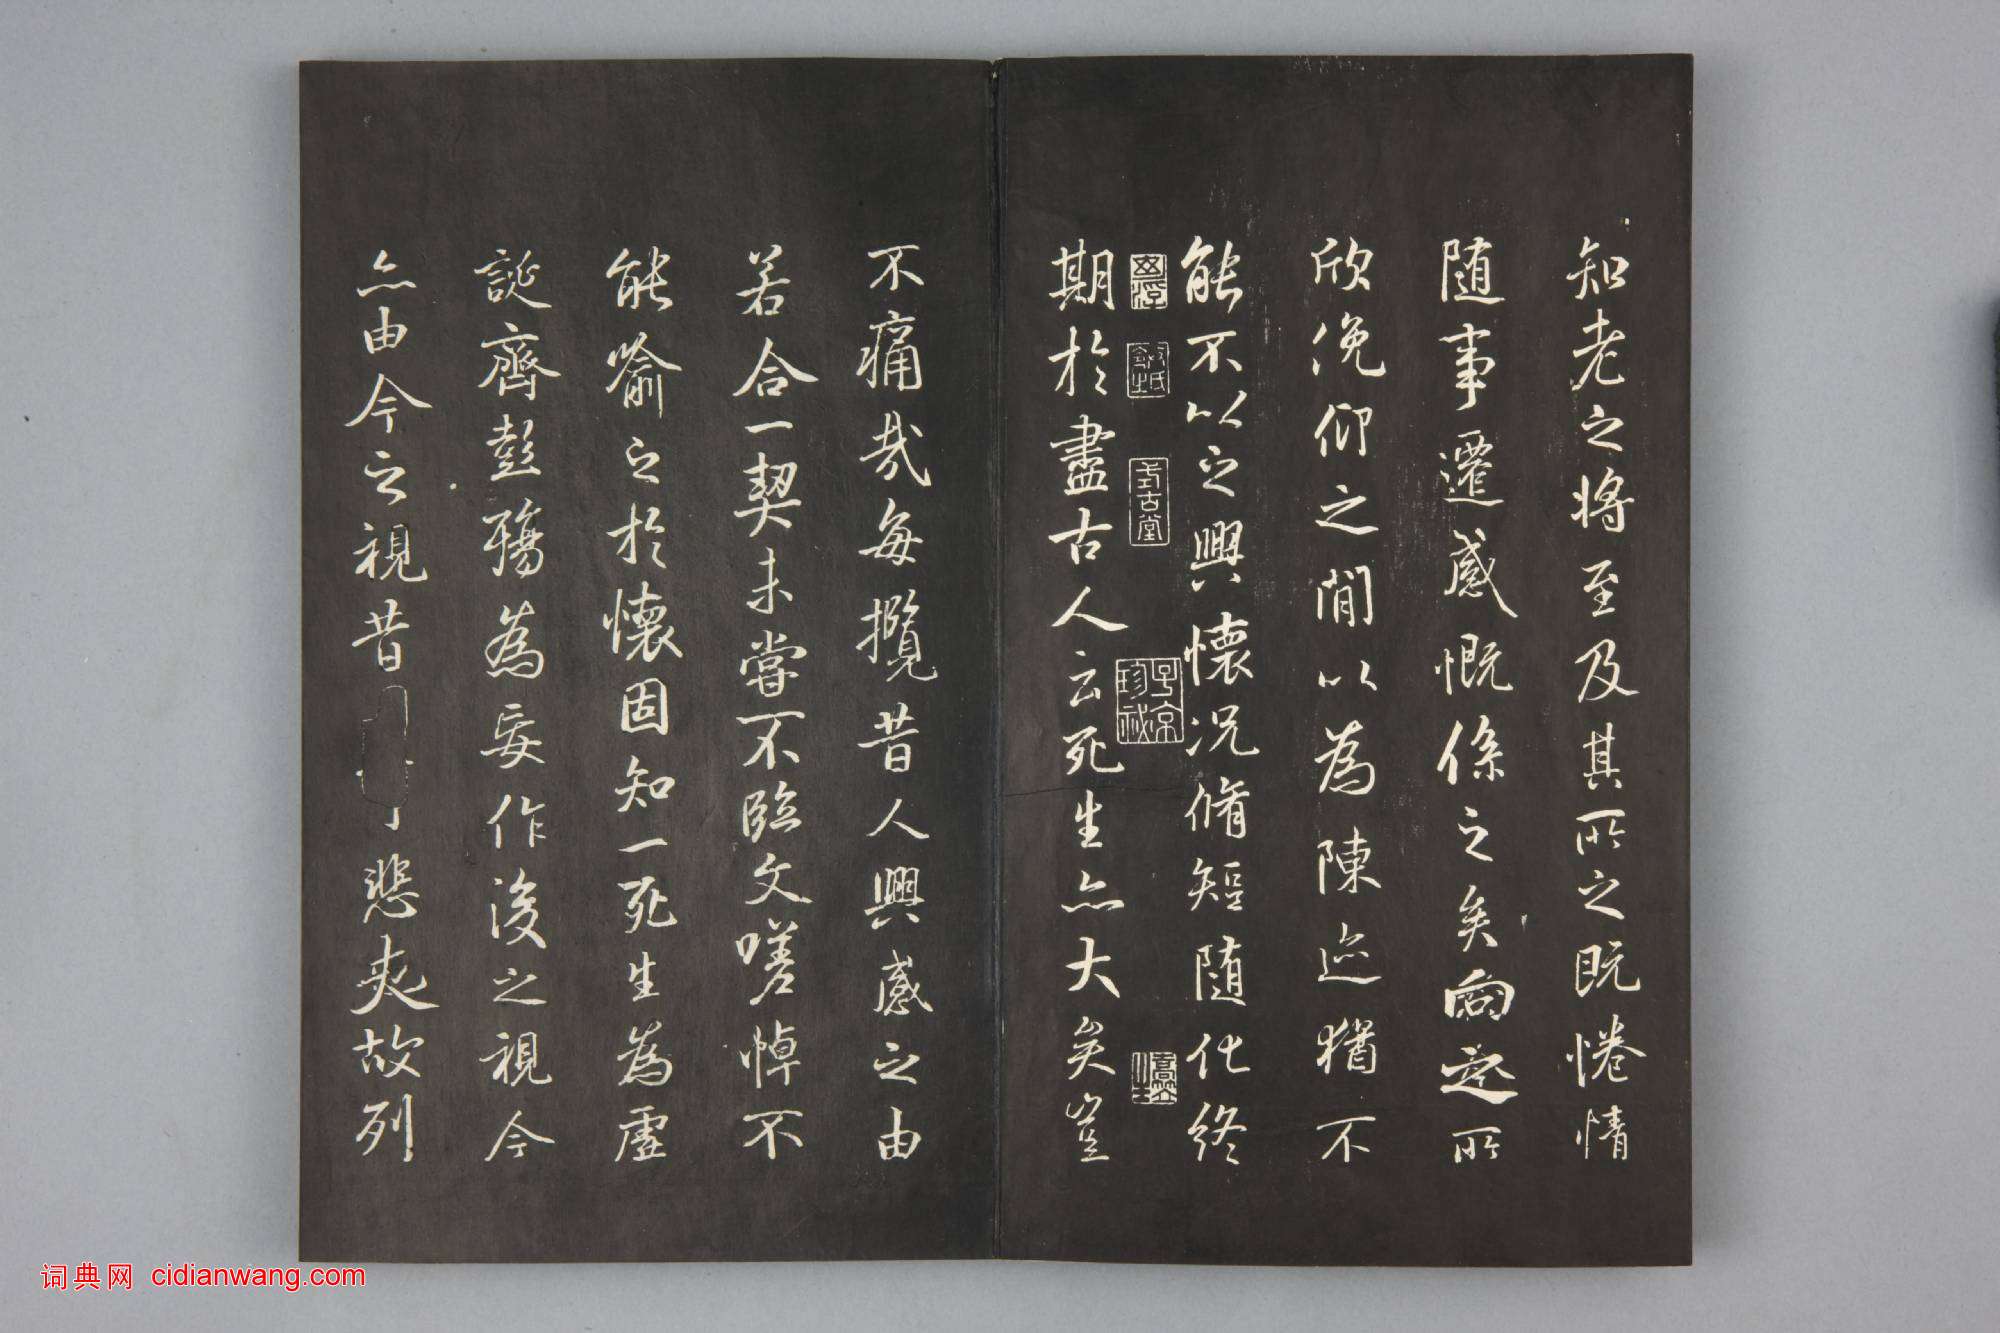 知老之将至及其所之既惓情
随事遷感慨係之矣向之所
欣俛仰之閒以為陳迹猶不
能不以之興懷况脩短随化終
式古堂
子京珍祕
期於盡古人云死生亦大矣豈
不痛哉每攬昔人興感之由
若合一契未嘗不臨文嗟悼不
能喻之於懷固知一死生為虛
誕齊彭殤為妄作後之視今
亦由今之視昔悲夫故列
词典网 cidianwang.com